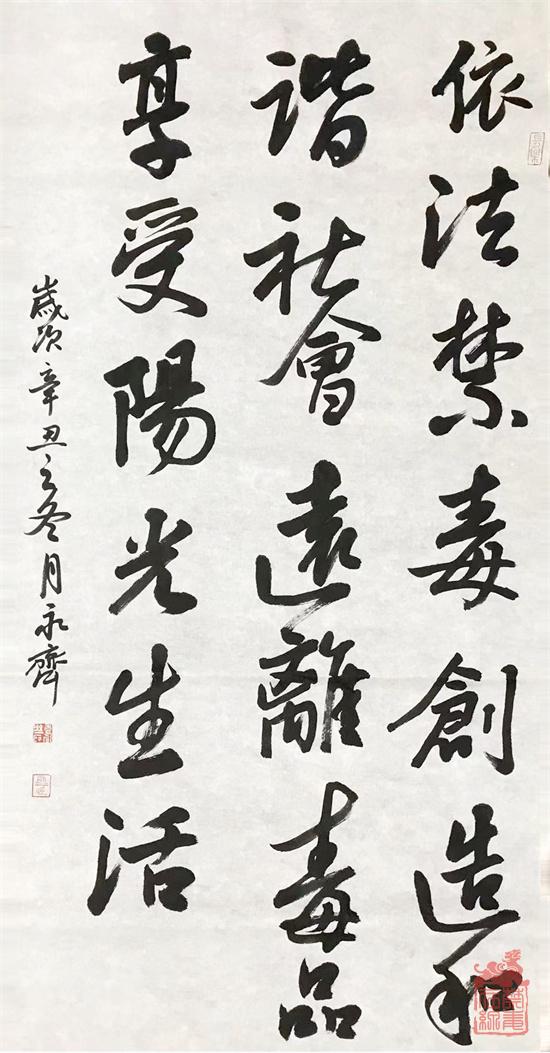 依法禁毒創造和
諧社會遠離毒品
享受陽光生活
歲次辛丑之冬月永齊